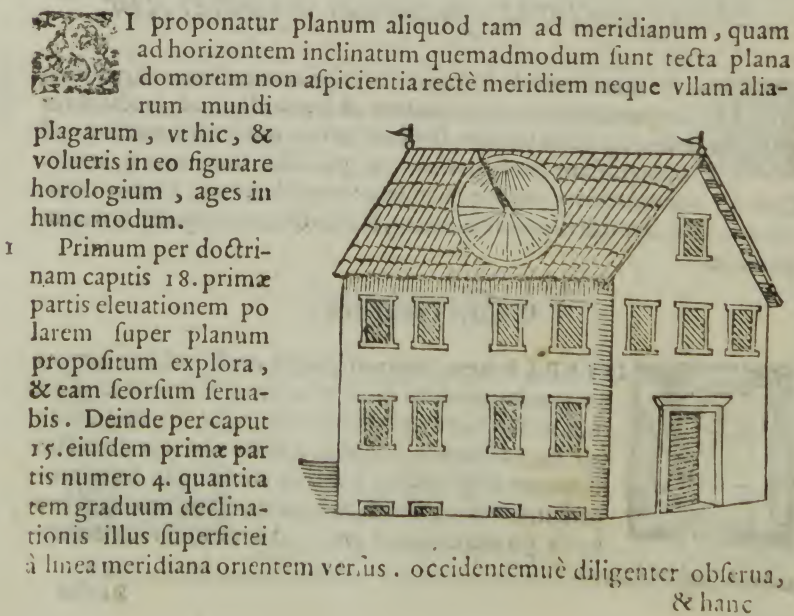 SI proponatur planum aliquod tam ad meridianum, quam
ad horizontem inclinatum quemadmodum ſunt tecta plana
domorum non aſpicientia rectè meridiem neque vllam alia-
rum mundi
plagarum, vt hic, &
volueris in eo figurare
horologium, ages in
hunc modum.
1 Primum per doctri-
nam capitis 18. primæ
partis eleuationem po
larem ſuper planum
propoſitum explora,
& eam ſeorſum ſerua-
bis. Deinde per caput
15. eiuſdem primæ par
tis numero 4. quantita
tem graduum declina-
tionis illus ſuperficiei
à linea meridiana orientem verſus. occidentemuè diligenter obſerua,
& hanc